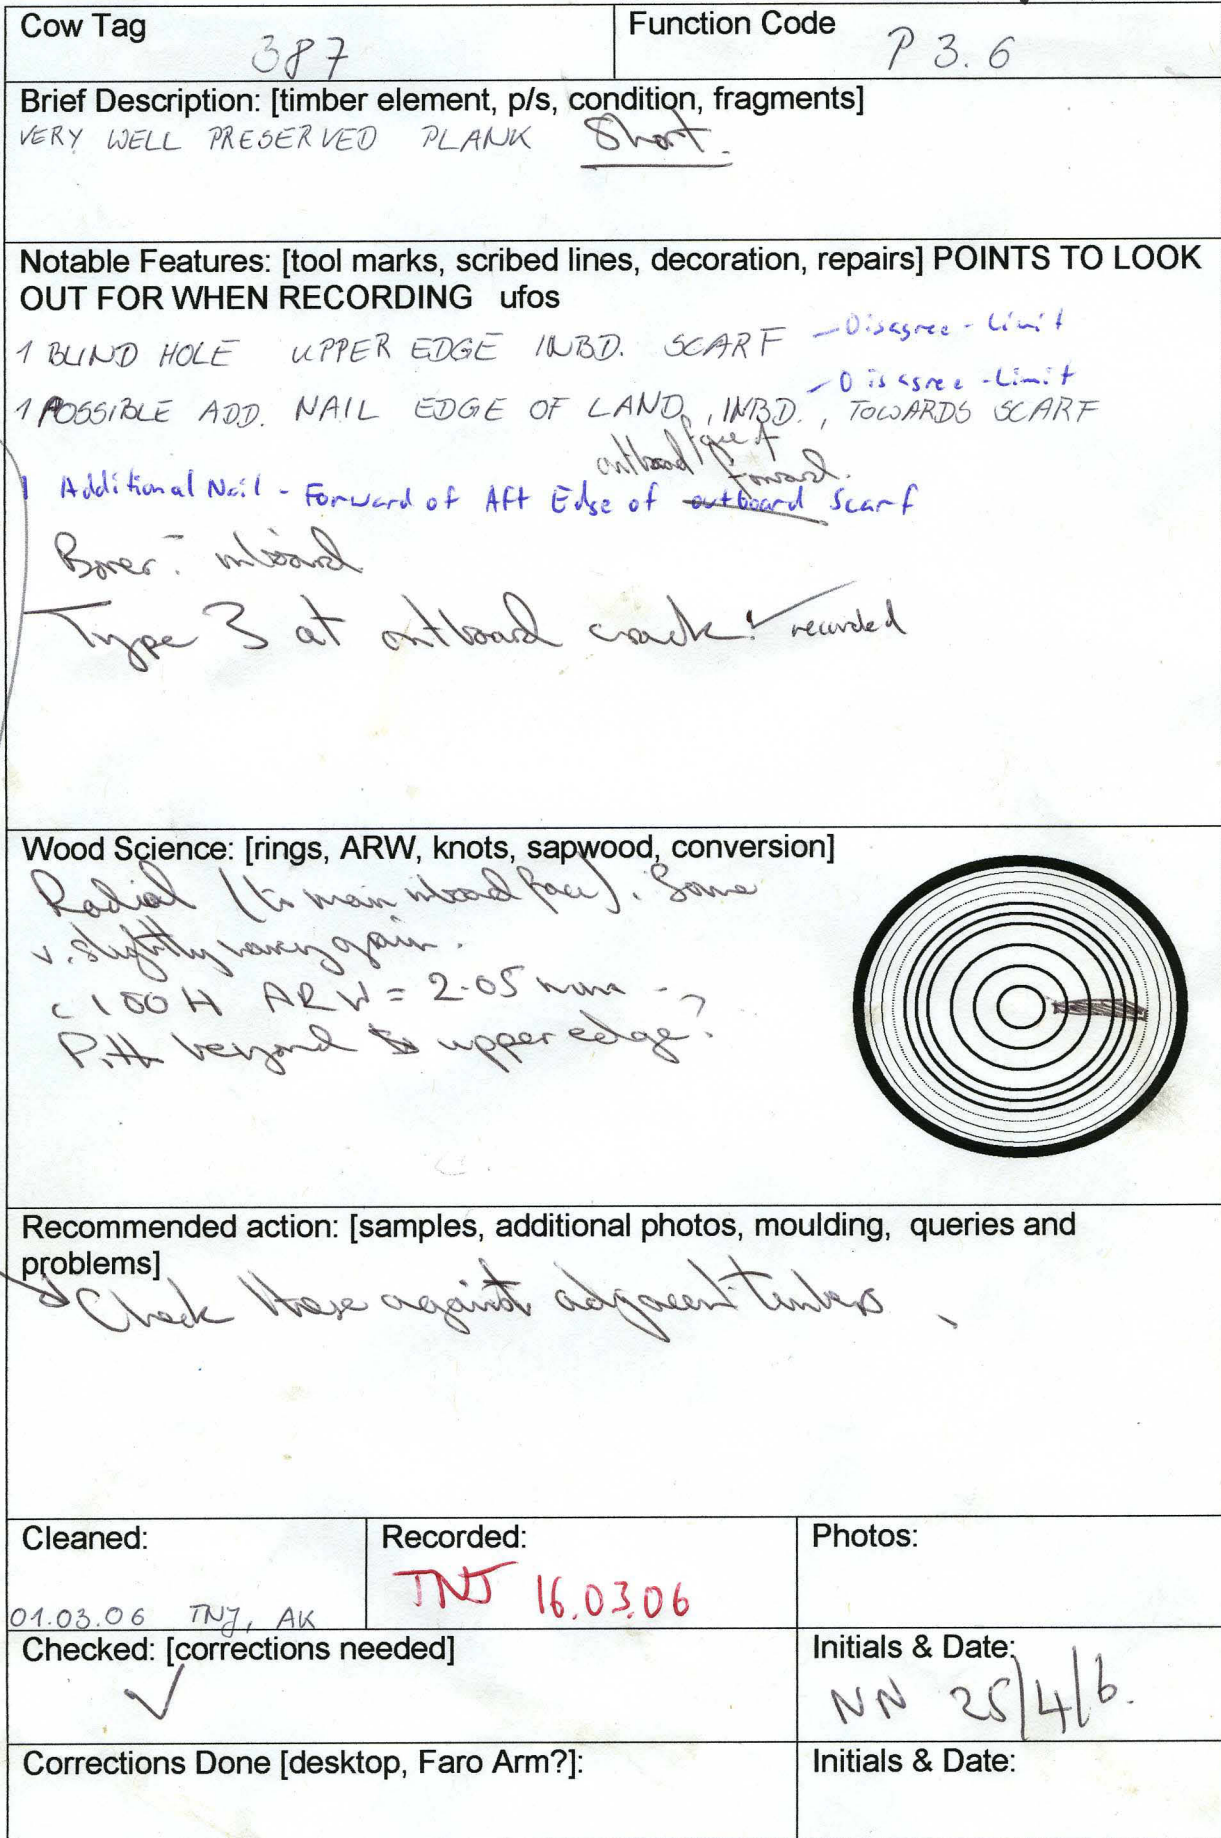 Cow Tag
387
Function Code
P 3.6
Brief Description: [timber element, p/s, condition, fragments]
VERY WELL PRESERVED PLANK Short.
Notable Features: [tool marks, scribed lines, decoration, repairs] POINTS TO LOOK
OUT FOR WHEN RECORDING ufos
1 BLIND HOLE UPPER EDGE INBD. SCARF - Disagree - Limit
- Disagree - Limit
1 POSSIBLE ADD. NAIL EDGE OF LAND, INBD., TOWARDS SCARF
outboard face of
forward.
1 Additional Nail - Forward of Aft Edge of outboard Scarf
Borer - inboard
Type 3 at outboard crack. ✓ recorded
Wood Science: [rings, ARW, knots, sapwood, conversion]
Radial (to main inboard face). Some
v. slightly wavy grain.
c 100 H ARW = 2.05 mm -
Pith beyond upper edge?
Recommended action: [samples, additional photos, moulding, queries and
problems]
Check these against adjacent timbers.
Cleaned:
01.03.06 TNJ, AK
Recorded:
TNJ 16.03.06
Photos:
Checked: [corrections needed]
✓
Initials & Date:
NN 25/4/6.
Corrections Done [desktop, Faro Arm?]:
Initials & Date: